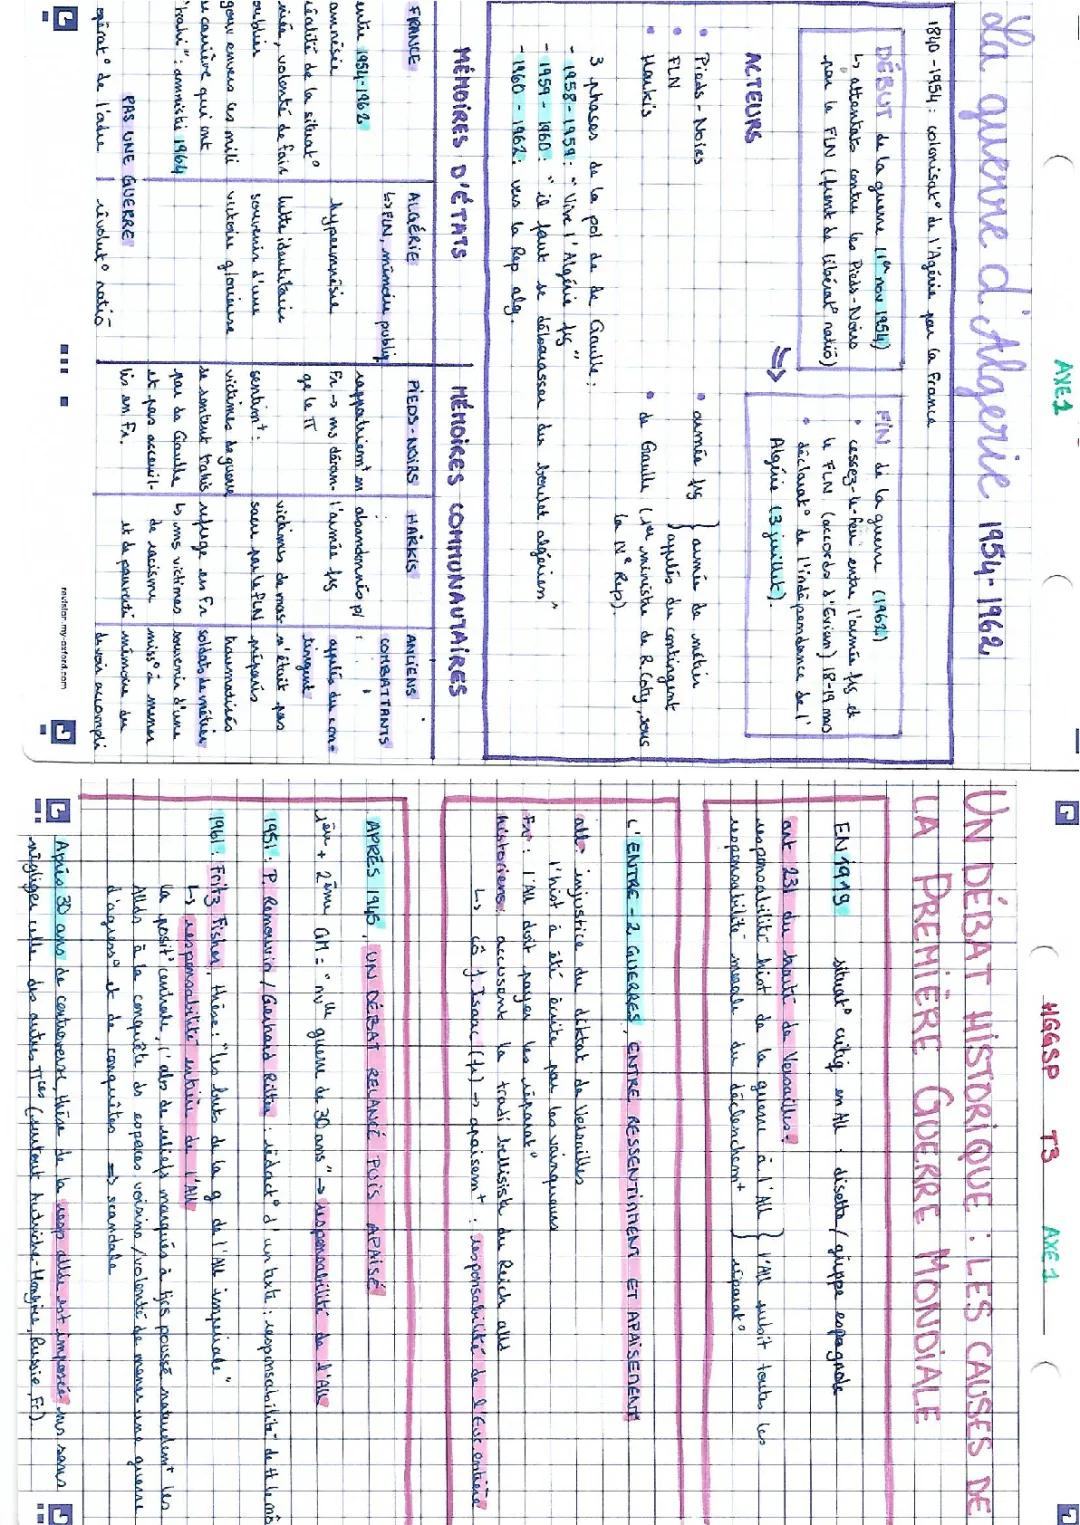 AXE 1
La guerre d'Algerie 1954-1962
1840-1954 : colonisat° de l'Algérie par la France
DÉBUT de la guerre (1er nov 1954)
↳ attentats contre les Pieds-Noirs
par le FLN (front de libérat° natio)
⇒
FIN de la guerre (1962)
• cessez-le-feu entre l'armée fs et
le FLN (accords d'Evian) 18-19 mars
• déclarat° de l'indépendance de l'
Algérie (3 juillet).
ACTEURS
• Pieds-Noirs
• FLN
• Harkis
• armée fs } armée de métier
appelés du contingent
• de Gaulle (1er ministre de R.Coty, sous
la IVe Rep).
3 phases de la pol de de Gaulle :
- 1958-1959 : "Vive l'Algérie fs"
- 1959-1960 : "il faut se débarasser du boulet algérien"
- 1960-1962 : vers la Rep alg.
MÉMOIRES D'ÉTATS
MÉMOIRES COMMUNAUTAIRES
FRANCE
entre 1954-1962
amnésie
réalité de la situat°
niée, volonté de faire
oublier
gouv envers les mili
de carrière qui ont
"trahi" : amnistie 1964
opérat° de l'ordre
ALGÉRIE
↳ FLN, mémoire publiq
hypermnésie
lutte identitaire
souvenir d'une
victoire glorieuse
révolut° natio
PAS UNE GUERRE
PIEDS-NOIRS
rapatriem^t en
Fr → ms déran-
ge le π
sentim^t :
victimes de guerre
se sentent trahis
par de Gaulle
et pas acceuil-
lis en Fr.
HARKIS
abandonnés p/
l'armée fs
victimes de mas-
sacre par le FLN
refuge en Fr
↳ ms victimes
de racisme
et de pauvreté
ANCIENS
COMBATTANTS
appelés du con-
tingent
n'était pas
préparés
traumatisés
soldats de métier
souvenir d'une
miss° à mener
mémoire du
devoir accompli
revision.my-oxford.com
HGGSP T3 AXE 1
UN DÉBAT HISTORIQUE : LES CAUSES DE
LA PREMIÈRE GUERRE MONDIALE
EN 1919 situat° critiq en All : disette / grippe espagnole
art 231 du traité de Versailles :
responsabilité hist de la guerre à l'All } l'All subit toutes les
responsabilité morale du déclenchem^t } réparat°
L'ENTRE-2 GUERRES, ENTRE RESSENTIMENT ET APAISEMENT
all : injustice du diktat de Versailles
l'hist à été écrite par les vainqueurs
Fr : l'All doit payer les réparat°
historiens : accusent la tradi belliciste du Reich alld
↳ cô J. Isaac (fr) → apaisem^t : responsabilité de l'Eur. entière
APRÈS 1945, UN DÉBAT RELANCÉ PUIS APAISÉ
1ère + 2ème GM = "nvlle guerre de 30 ans" → responsabilité de l'All
1951 : P. Renouvin / Gerhard Ritter : rédact° d'un texte : responsabilité de tt le m̃
1961 : Fritz Fisher, thèse : "les buts de la g de l'All impériale"
↳ responsabilité entière de l'All
la posit° centrale, l'abs de reliefs marqués à tjrs poussé naturellem^t les
Allds à la conquête ds espaces voisins / volonté de mener une guerre
d'agress° et de conquêtes ⇒ scandale
Après 30 ans de controverse, thèse de la resp allde est imposée mr sans
négliger celle des autres πces (surtout Autriche-Hongrie, Russie, Fr).